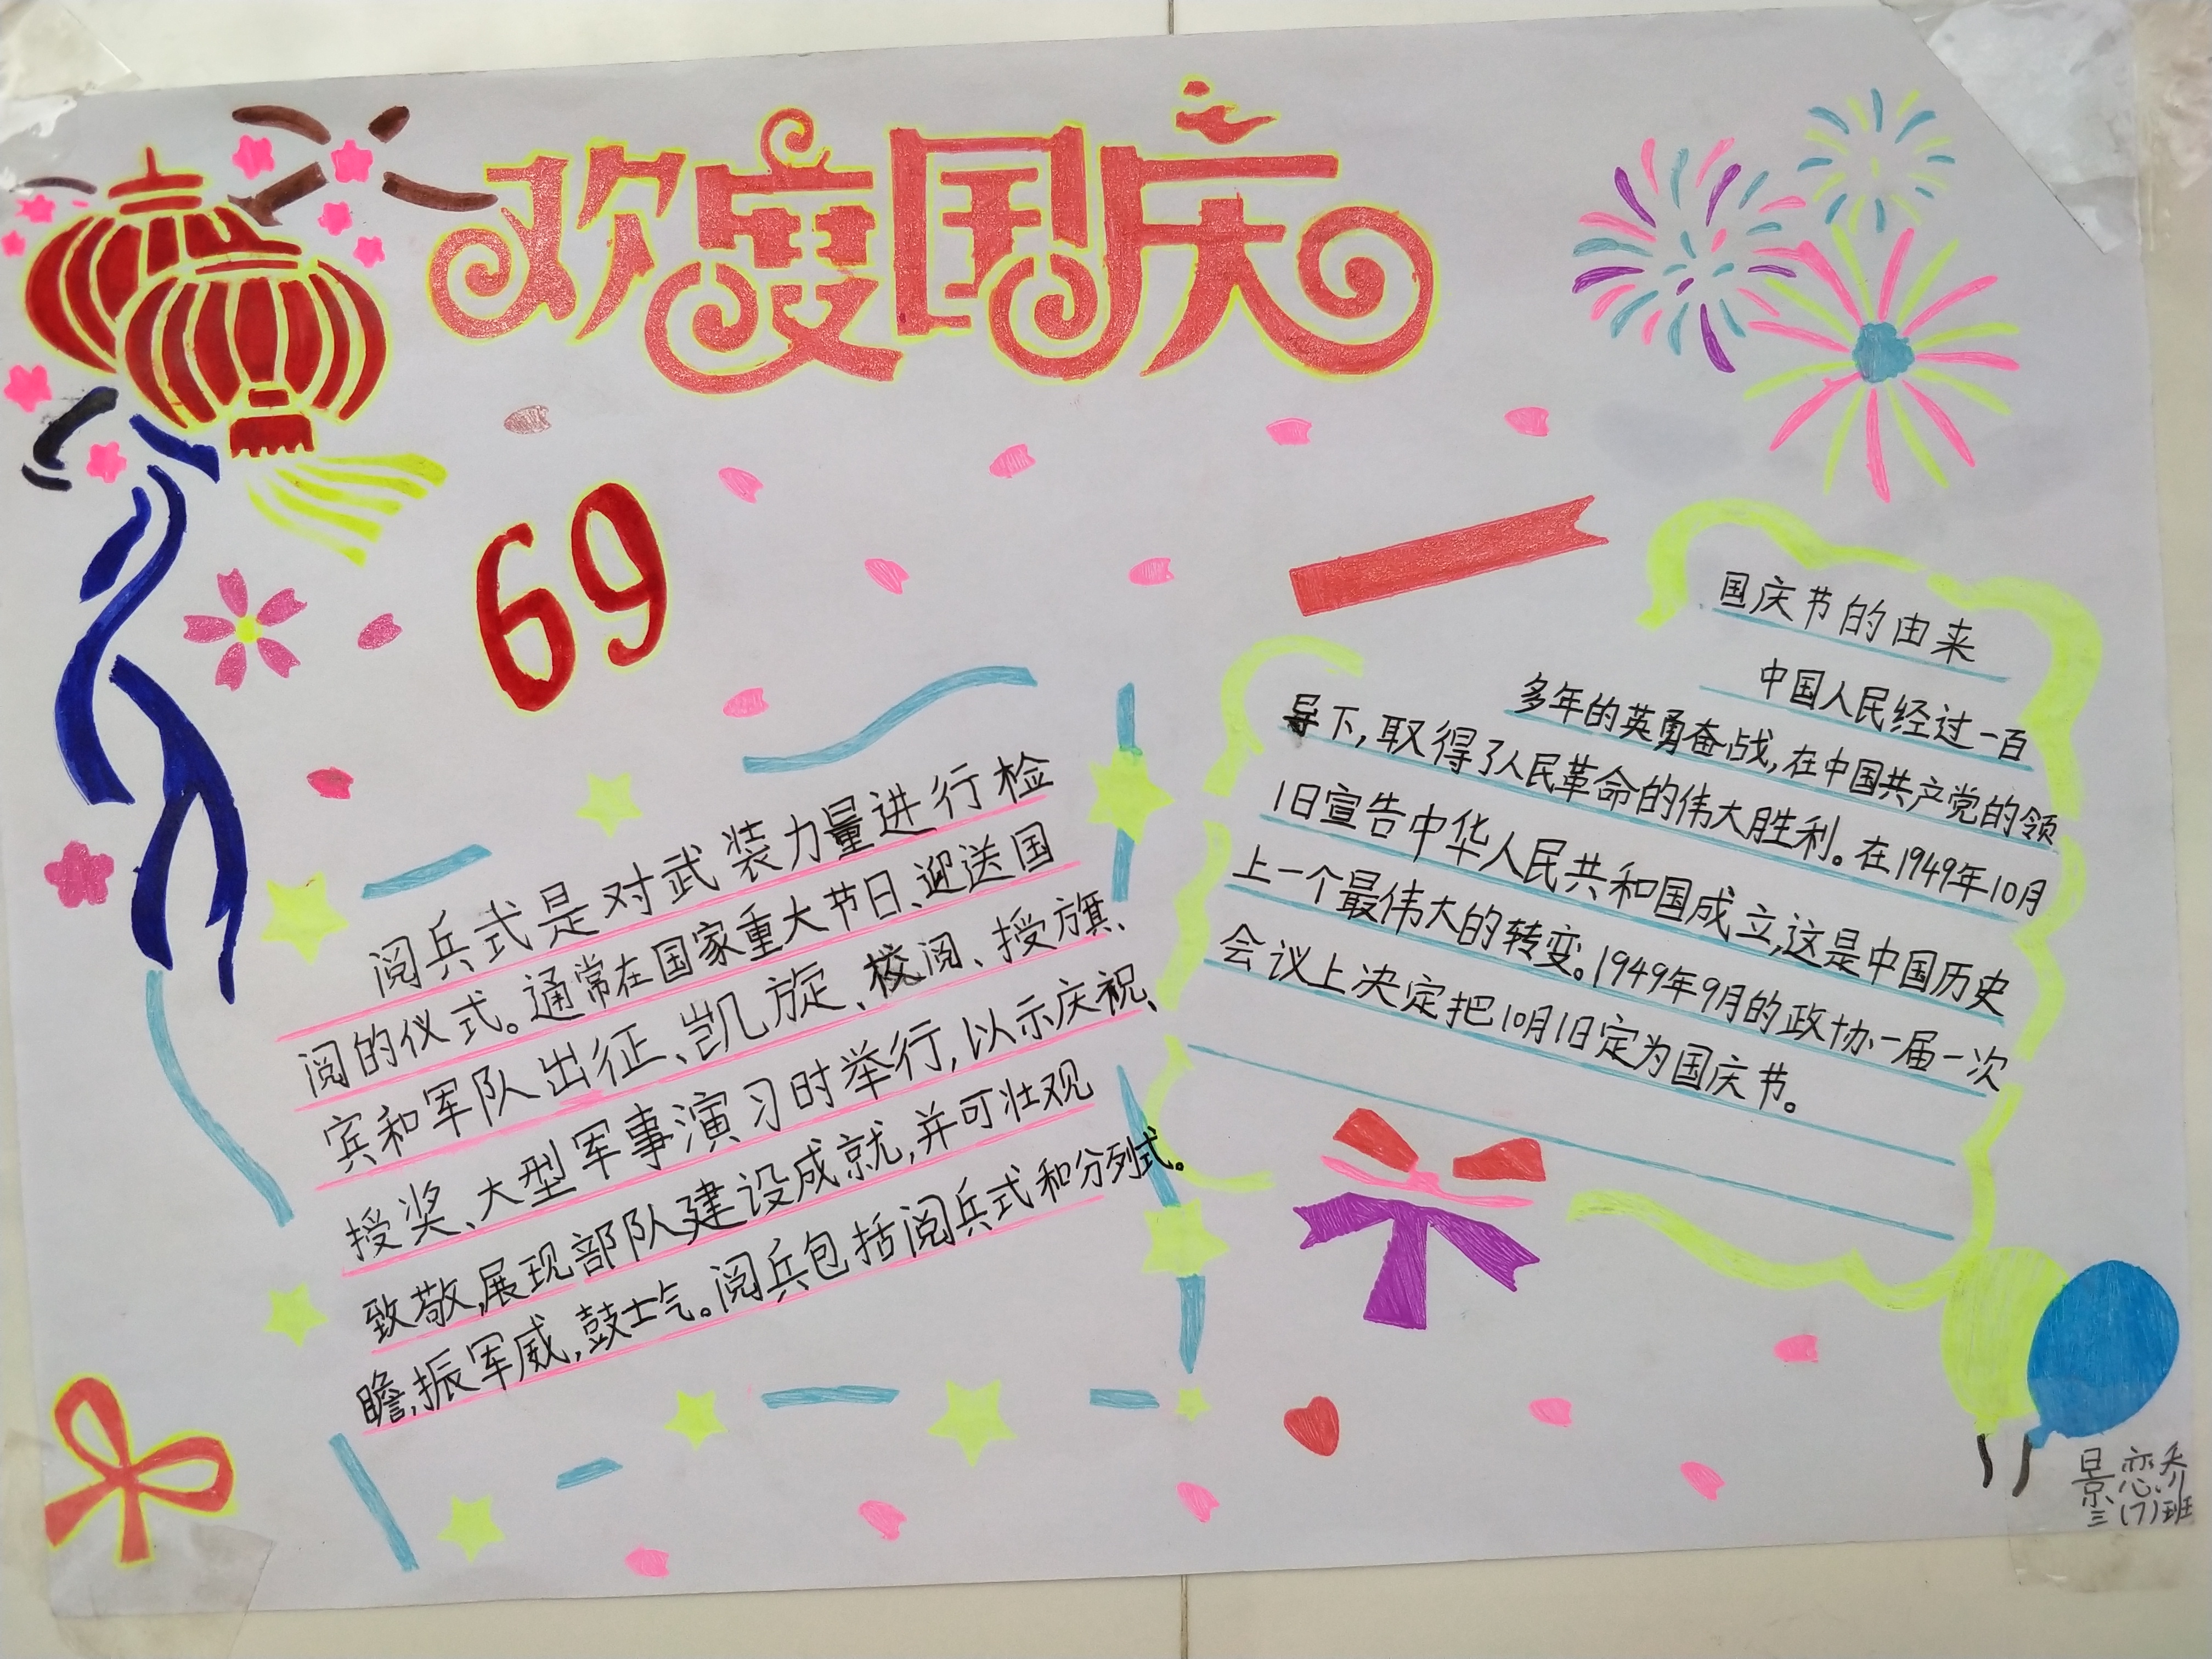 欢度国庆
69
阅兵式是对武装力量进行检
阅的仪式。通常在国家重大节日、迎送国
宾和军队出征、凯旋、校阅、授旗、
授奖、大型军事演习时举行,以示庆祝、
致敬,展现部队建设成就,并可壮观
瞻,振军威,鼓士气。阅兵包括阅兵式和分列式。
国庆节的由来
中国人民经过一百
多年的英勇奋战,在中国共产党的领
导下,取得了人民革命的伟大胜利。在1949年10月
1日宣告中华人民共和国成立,这是中国历史
上一个最伟大的转变。1949年9月的政协一届一次
会议上决定把10月1日定为国庆节。
景恋
三(7)班